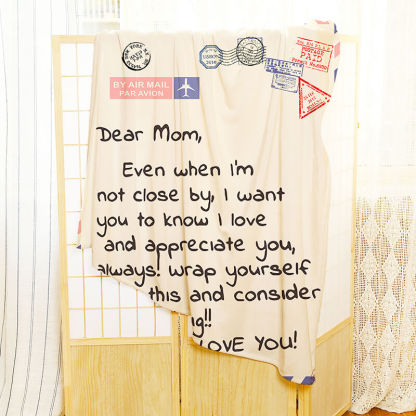 BY AIR MAIL
PAR AVION
POSTAGE
PAID
Dear Mom,
Even when I'm
not close by, I want
you to know I love
and appreciate you,
always! Wrap yourself
this and consider
ig!!
LOVE YOU!